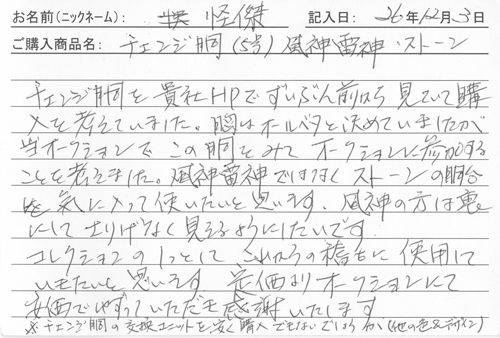 お名前(ニックネーム): 怪傑 記入日: 26年12月3日
ご購入商品名: チェンジ胴(5号)風神雷神・ストーン
チェンジ胴を貴社HPでずいぶん前から見ていて購
入を考えていました。胴はオールベタと決めていましたが
オークションでこの胴をみてオークションに参加する
ことを考えました。風神雷神ではなくストーンの胴台
を気に入って使いたいと思います、風神の方は裏
にしてさりげなく見えるようにしたいです。
コレクションの1つとしてこれからの稽古に使用して
いきたいと思います 定価よりオークションにて
安価でゆずっていただき感謝いたします
※チェンジ胴の交換ユニットを安く購入できないでしょうか(他の色又デザイン)